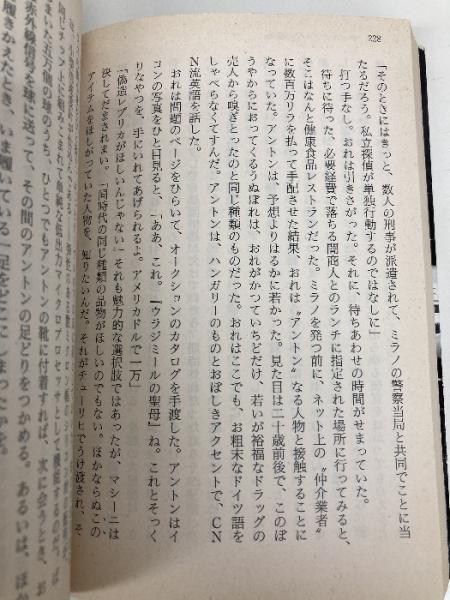 228
「そのときにはきっと、数人の刑事が派遣されて、ミラノの警察当局と共同でことに当
たるだろう。私立探偵が単独行動するのではなしに」
打つ手なし。おれは引きさがった。それに、待ちあわせの時間がせまっていた。
待ちに待った、必要経費で落ちる闇商人とのランチに指定された場所に行ってみると、
そこはなんと健康食品レストランだった。ミラノを発つ前に、ネット上の〝仲介業者〟
に数百万リラを払って手配させた結果、おれは〝アントン〟なる人物と接触することに
なっていた。アントンは、予想よりはるかに若かった。見た目は二十歳前後で、このぼ
うやからにおってくるうぬぼれは、おれがかつていちどだけ、若いが裕福なドラッグの
売人から嗅ぎとったのと同じ種類のものだった。おれはここでも、お粗末なドイツ語を
しゃべらなくてすんだ。アントンは、ハンガリーのものとおぼしきアクセントで、CN
N流英語を話した。
おれは問題のページをひらいて、オークションのカタログを手渡した。アントンはイ
コンの写真をひと目見ると、「ああ、これ。『ウラジミールの聖母』ね。これとそっく
りなやつを、手にいれてあげられるよ。アメリカドルで一万」
「偽造レプリカがほしいんじゃない」それも魅力的な選択肢ではあったが、マシーニは
決してだまされまい。「同時代の同じ種類の品物がほしいのでもない。ほかならぬこの
アイテムをほしがっていた人物を、知りたいんだ。それがチューリヒでうけ渡され、そ